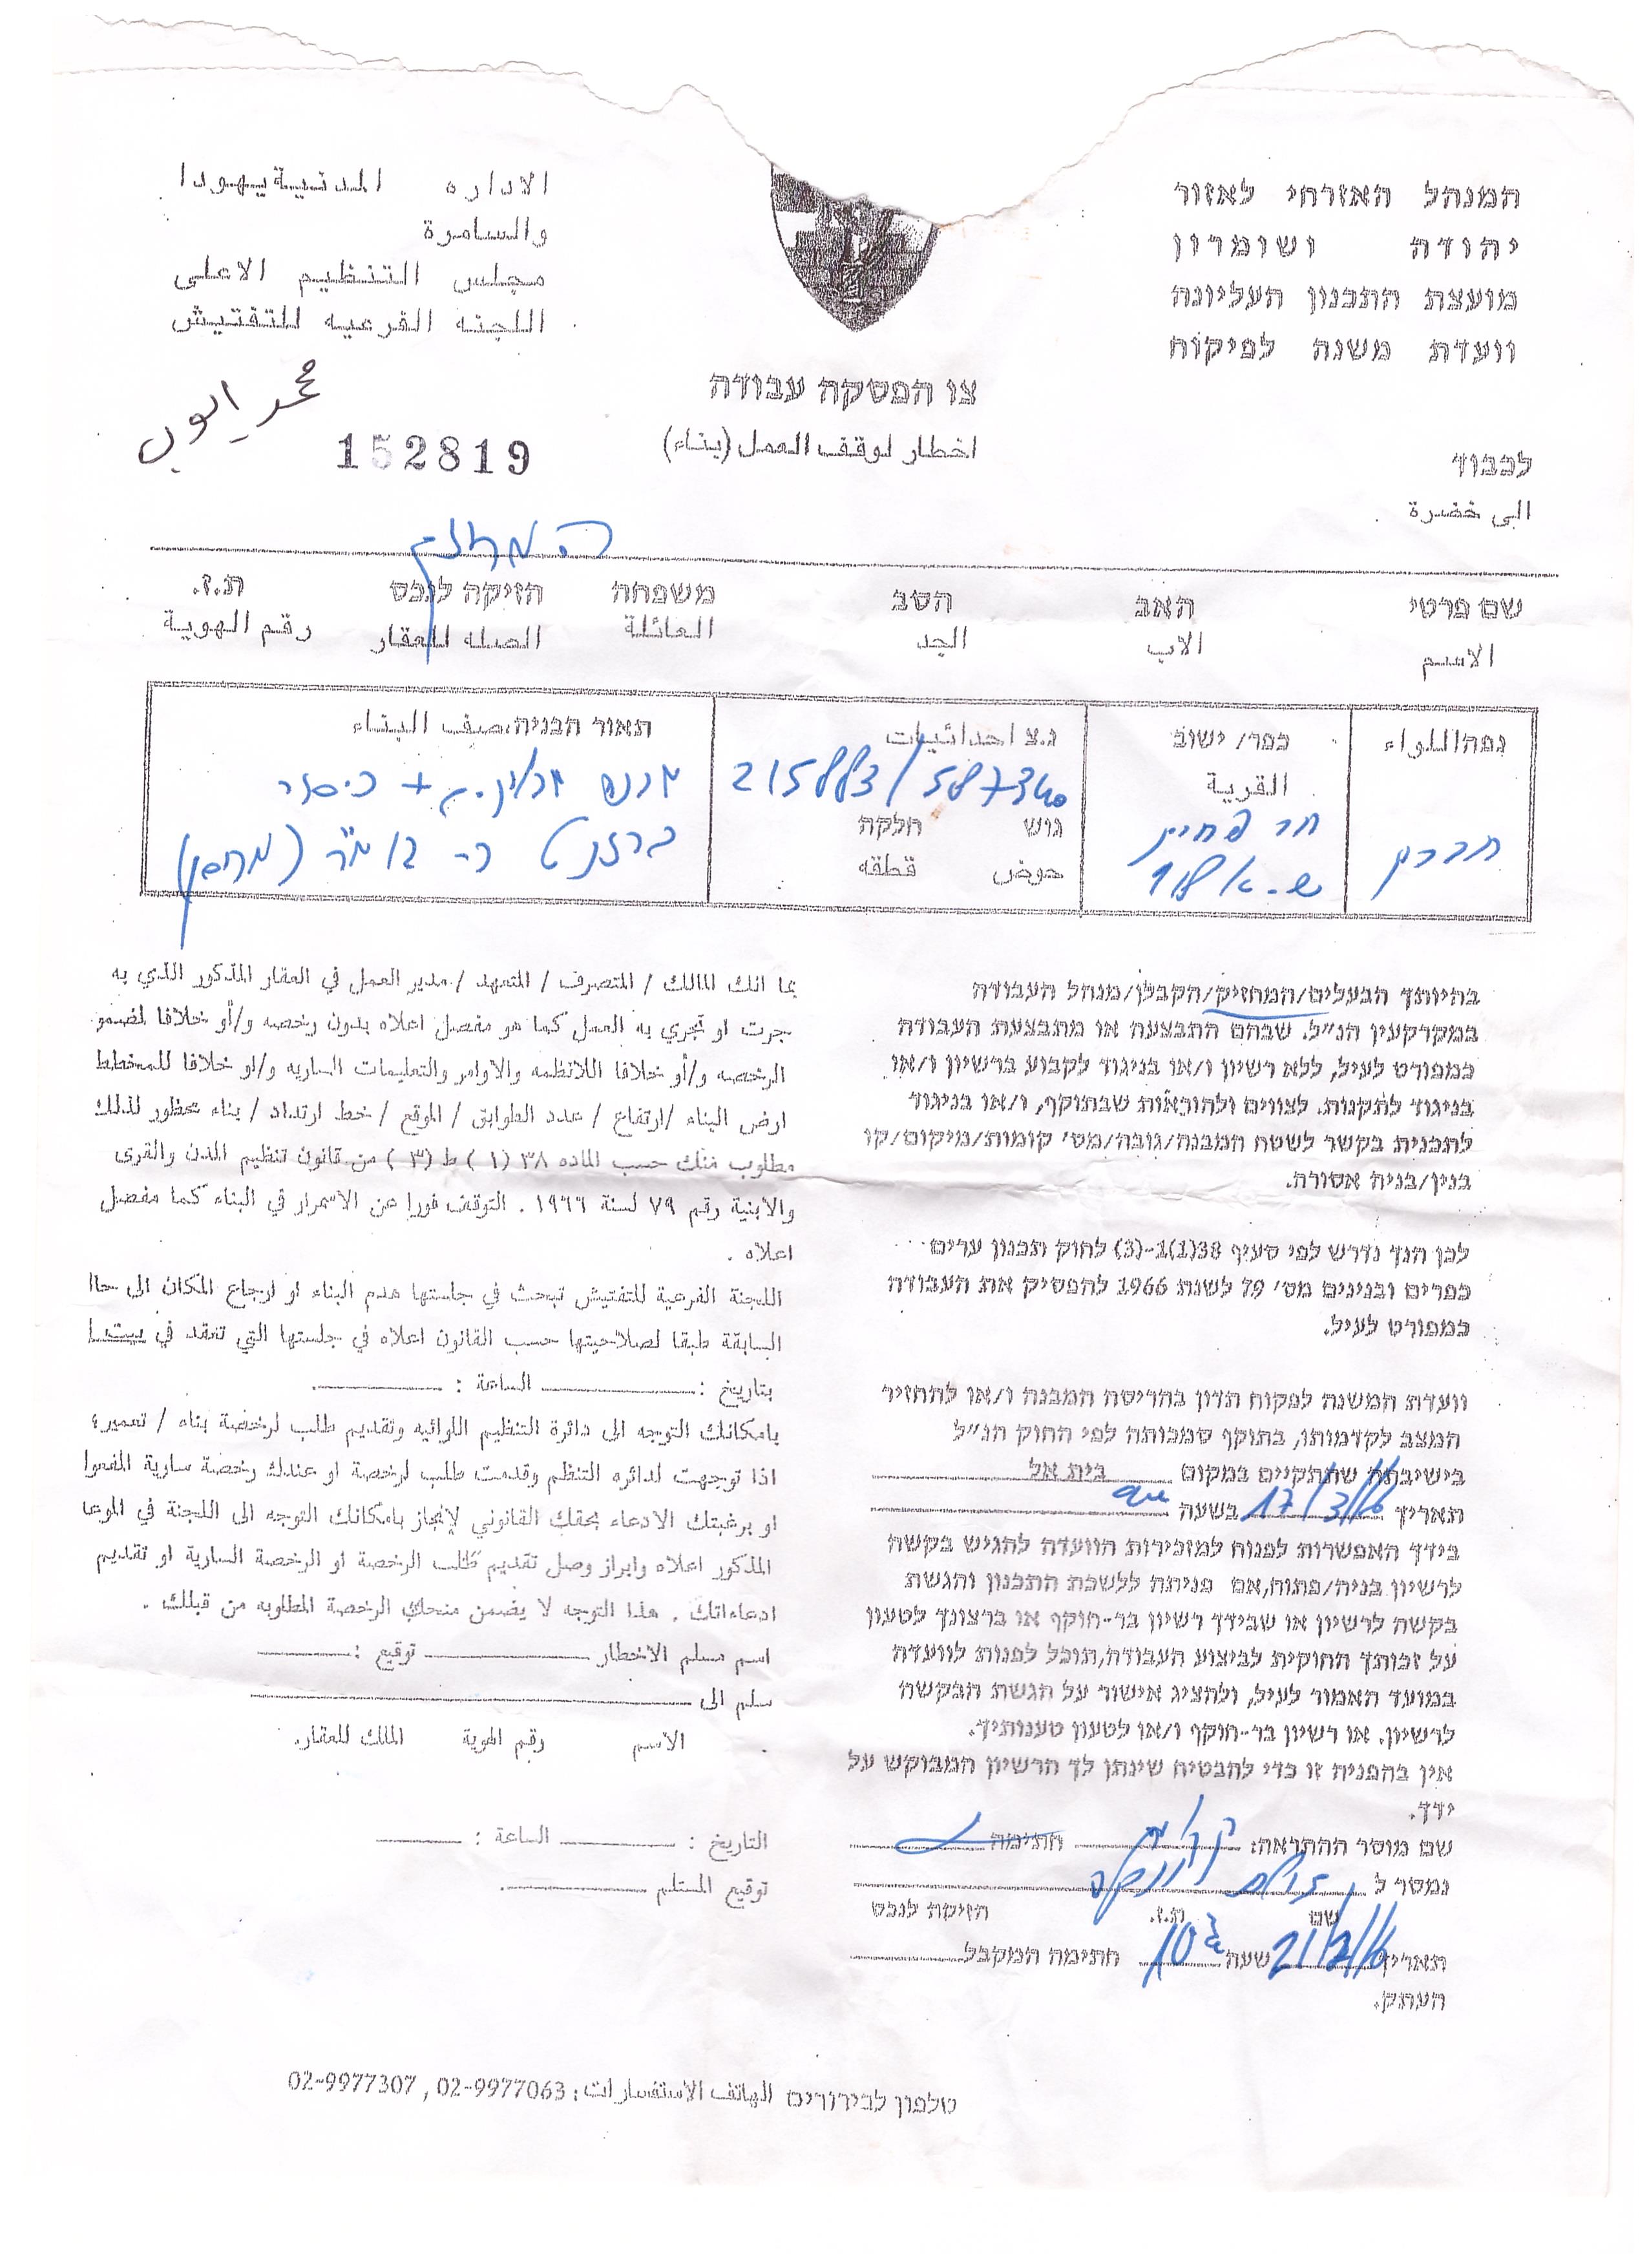 המנהל האזרחי לאזור
יהודה ושומרון
מועצת התכנון העליונה
וועדת משנה לפיקוח
الاداره المدنيية يهودا
والسامرة
مجلس التنظيم الاعلى
اللجنه الفرعيه للتفتيش
محمد ايوب
152819
צו הפסקה עבודה
اخطار لوقف العمل (بناء)
לכבוד
الى خضرة
המחזיק
שם פרטי האב הסב משפחה הזיקה לנכס ת.ז.
الاسم الاب الجد العائلة الصله للعقار رقم الهوية
נפה اللواء
חברון
כפר/ ישוב
القرية
נ.צ احداثيات
גוש חלקה
حوض قطقه
תאור הבניה،صيف البناء
בהיותך הבעלים/המחזיק/הקבלן/מנהל העבודה
במקרקעין הנ״ל. שבהם התבצעה או מתבצעת העבודה
כמפורט לעיל, ללא רשיון ו/או בניגוד לקבוע ברשיון ו/או
בניגוד לתקנות. לצווים ולהוראות שבתוקף, ו/או בניגוד
לתכנית בקשר לשטח המבנה/גובה/מס׳ קומות/מיקום/קו
בנין/בניה אסורה.
לכן הנך נדרש לפי סעיף 38(1)1-(3) לחוק תכנון ערים
כפרים ובנינים מס׳ 79 לשנת 1966 להפסיק את העבודה
כמפורט לעיל.
וועדת המשנה לפקוח תדון בהריסת המבנה ו/או להחזיר
המצב לקדמותו, בתוקף סמכותה לפי החוק הנ״ל
בישיבתה שתתקיים במקום בית אל
תאריך בשעה
בידך האפשרות לפנות למזכירות הוועדה להגיש בקשה
לרשיון בניה/פתוח,אם פניתה ללשכת התכנון והגשת
בקשה לרשיון או שבידך רשיון בר-תוקף או ברצונך לטעון
על זכותך החוקית לביצוע העבודה,תוכל לפנות לוועדה
במועד האמור לעיל, ולהציג אישור על הגשת הבקשה
לרשיון. או רשיון בר-תוקף ו/או לטעון טענותיך.
אין בהפניה זו כדי להבטיח שינתן לך הרשיון המבוקש על
ידך.
שם מוסר ההתראה: חתימה
נמסר ל
שם ת.ז. הזיקה לנכס
תאריך שעה חתימה המקבל
העתק.
بما انك المالك / المتصرف / المتعهد / مدير العمل في العقار المذكور الذي به
جرت او تجري به العمل كما هو مفصل اعلاه بدون رخصه و/أو خلافا لمضمو
الرخصه و/أو خلافا اللانظمه والاوامر والتعليمات الساريه و/او خلافا للمخطط
ارض البناء /ارتفاع / عدد الطوابق / الموقع / خط ارتداد / بناء محظور لذلك
مطلوب منك حسب الماده ٣٨ (١) ط (٣) من قانون تنظيم المدن والقرى
والابنية رقم ٧٩ لسنة ١٩٦٦ . التوقف فورا عن الاستمرار في البناء كما مفصل
اعلاه .
اللجنة الفرعية للتفتيش تبحث في جلستها هدم البناء او ارجاع المكان الى حاا
السابقة طبقا لصلاحيتها حسب القانون اعلاه في جلستها التي تعقد في بيت ا
بتاريخ : الساعة :
بامكانك التوجه الى دائرة التنظيم اللوائيه وتقديم طلب لرخصة بناء / تعمير؛
اذا توجهت لدائره التنظم وقدمت طلب لرخصة او عندك رخصة سارية المفعوا
او برغبتك الادعاء بحقك القانوني لإنجاز بامكانك التوجه الى اللجنة في الموعا
المذكور اعلاه وابراز وصل تقديم طلب الرخصة او الرخصة السارية او تقديم
ادعاءاتك . هذا التوجه لا يضمن منحك الرخصة المطلوبه من قبلك .
اسم مسلم الاخطار توقيع :
سلم الى
الاسم رقم الهوية المالك للعقار.
التاريخ : الساعة :
توقيع المستلم
טלפון לבירורים الهاتف الاستفسارات: 02-9977063 , 02-9977307